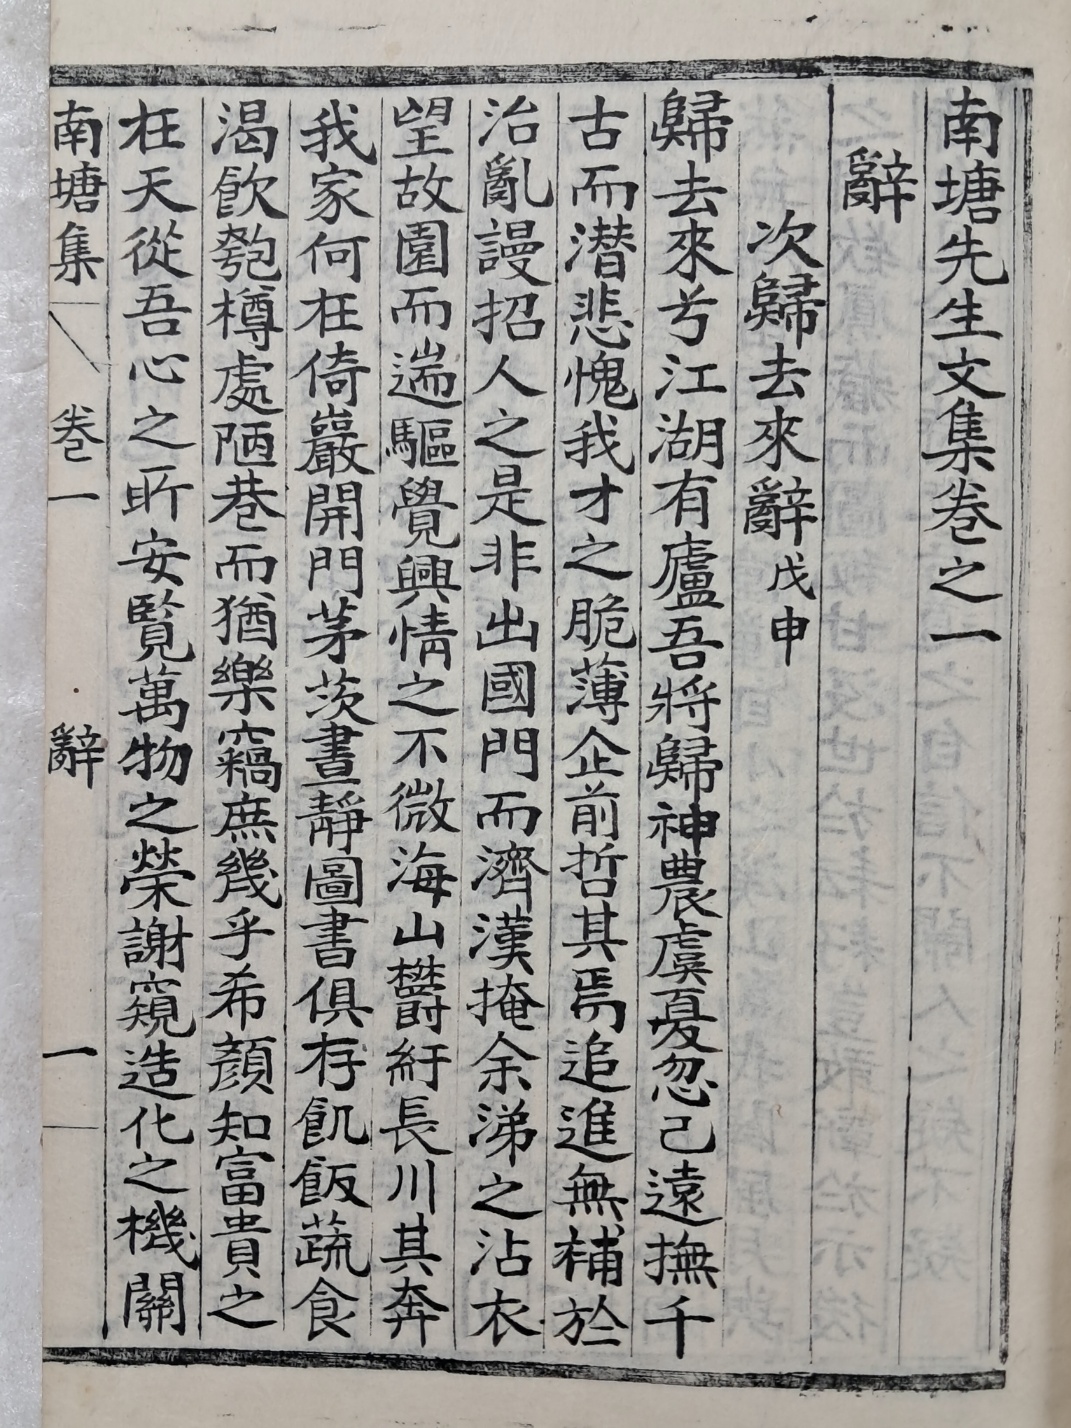 南塘先生文集卷之一
辭
次歸去來辭戊申
歸去來兮江湖有廬吾將歸神農虞夏忽已遠撫千
古而潛悲愧我才之脆薄企前哲其焉追進無補於
治亂謾招人之是非出國門而濟漢掩余涕之沾衣
望故園而遄驅覺興情之不微海山欝紆長川其奔
我家何在倚巖開門茅茨晝靜圖書俱存飢飯蔬食
渴飮匏樽處陋巷而猶樂竊庶幾乎希顔知富貴之
在天從吾心之所安覽萬物之榮謝窺造化之機關
南塘集 卷一 辭 一